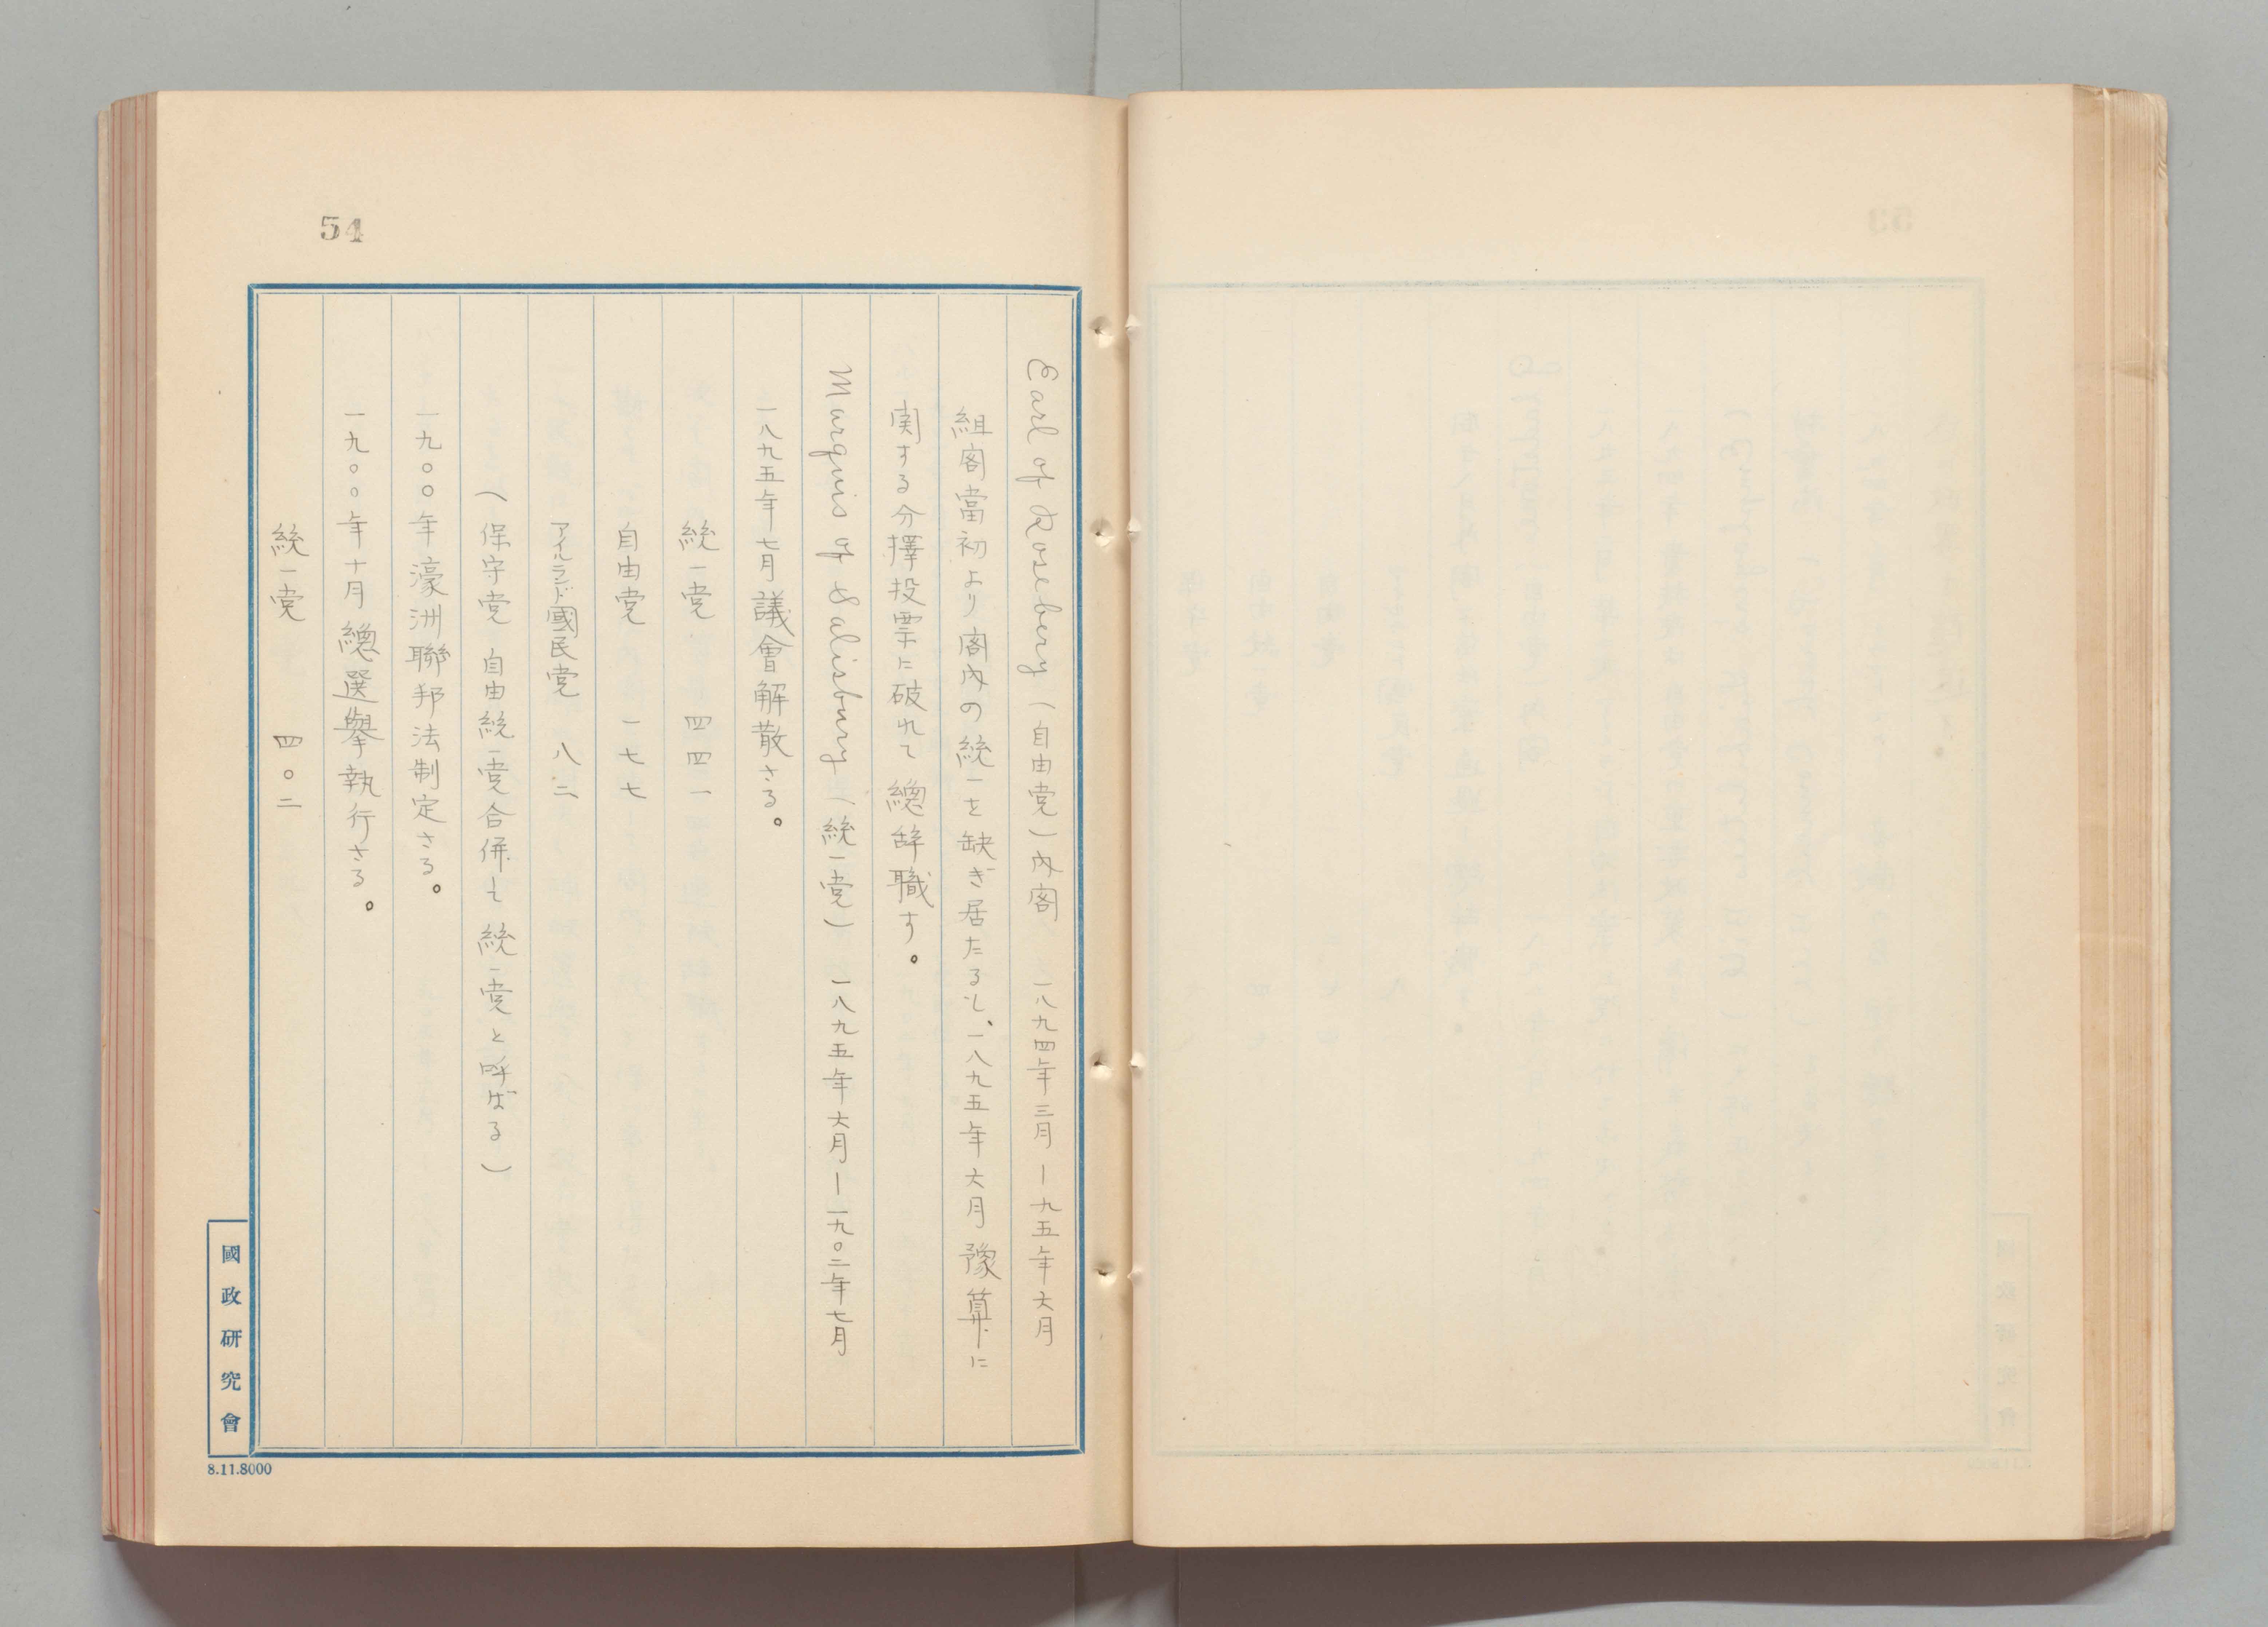 54
Earl of Rosebery (自由党) 內閣 一八九四年三月ー九五年六月
組閣當初より閣內の統一を缺ぎ居たるし、一八九五年六月豫算に
関する分擇投票に破れて總辞職す。
Marquis of Salisbury (統一党) 一八九五年六月ー一九〇二年七月
一八九五年七月議會解散さる。
統一党 四四一
自由党 一七七
アイルランド國民党 八二
(保守党 自由統一党合併して統一党と呼ばる)
一九〇〇年濠洲聯邦法制定さる。
一九〇〇年十月總選擧執行さる。
統一党 四〇二
國政研究會
8.11.8000